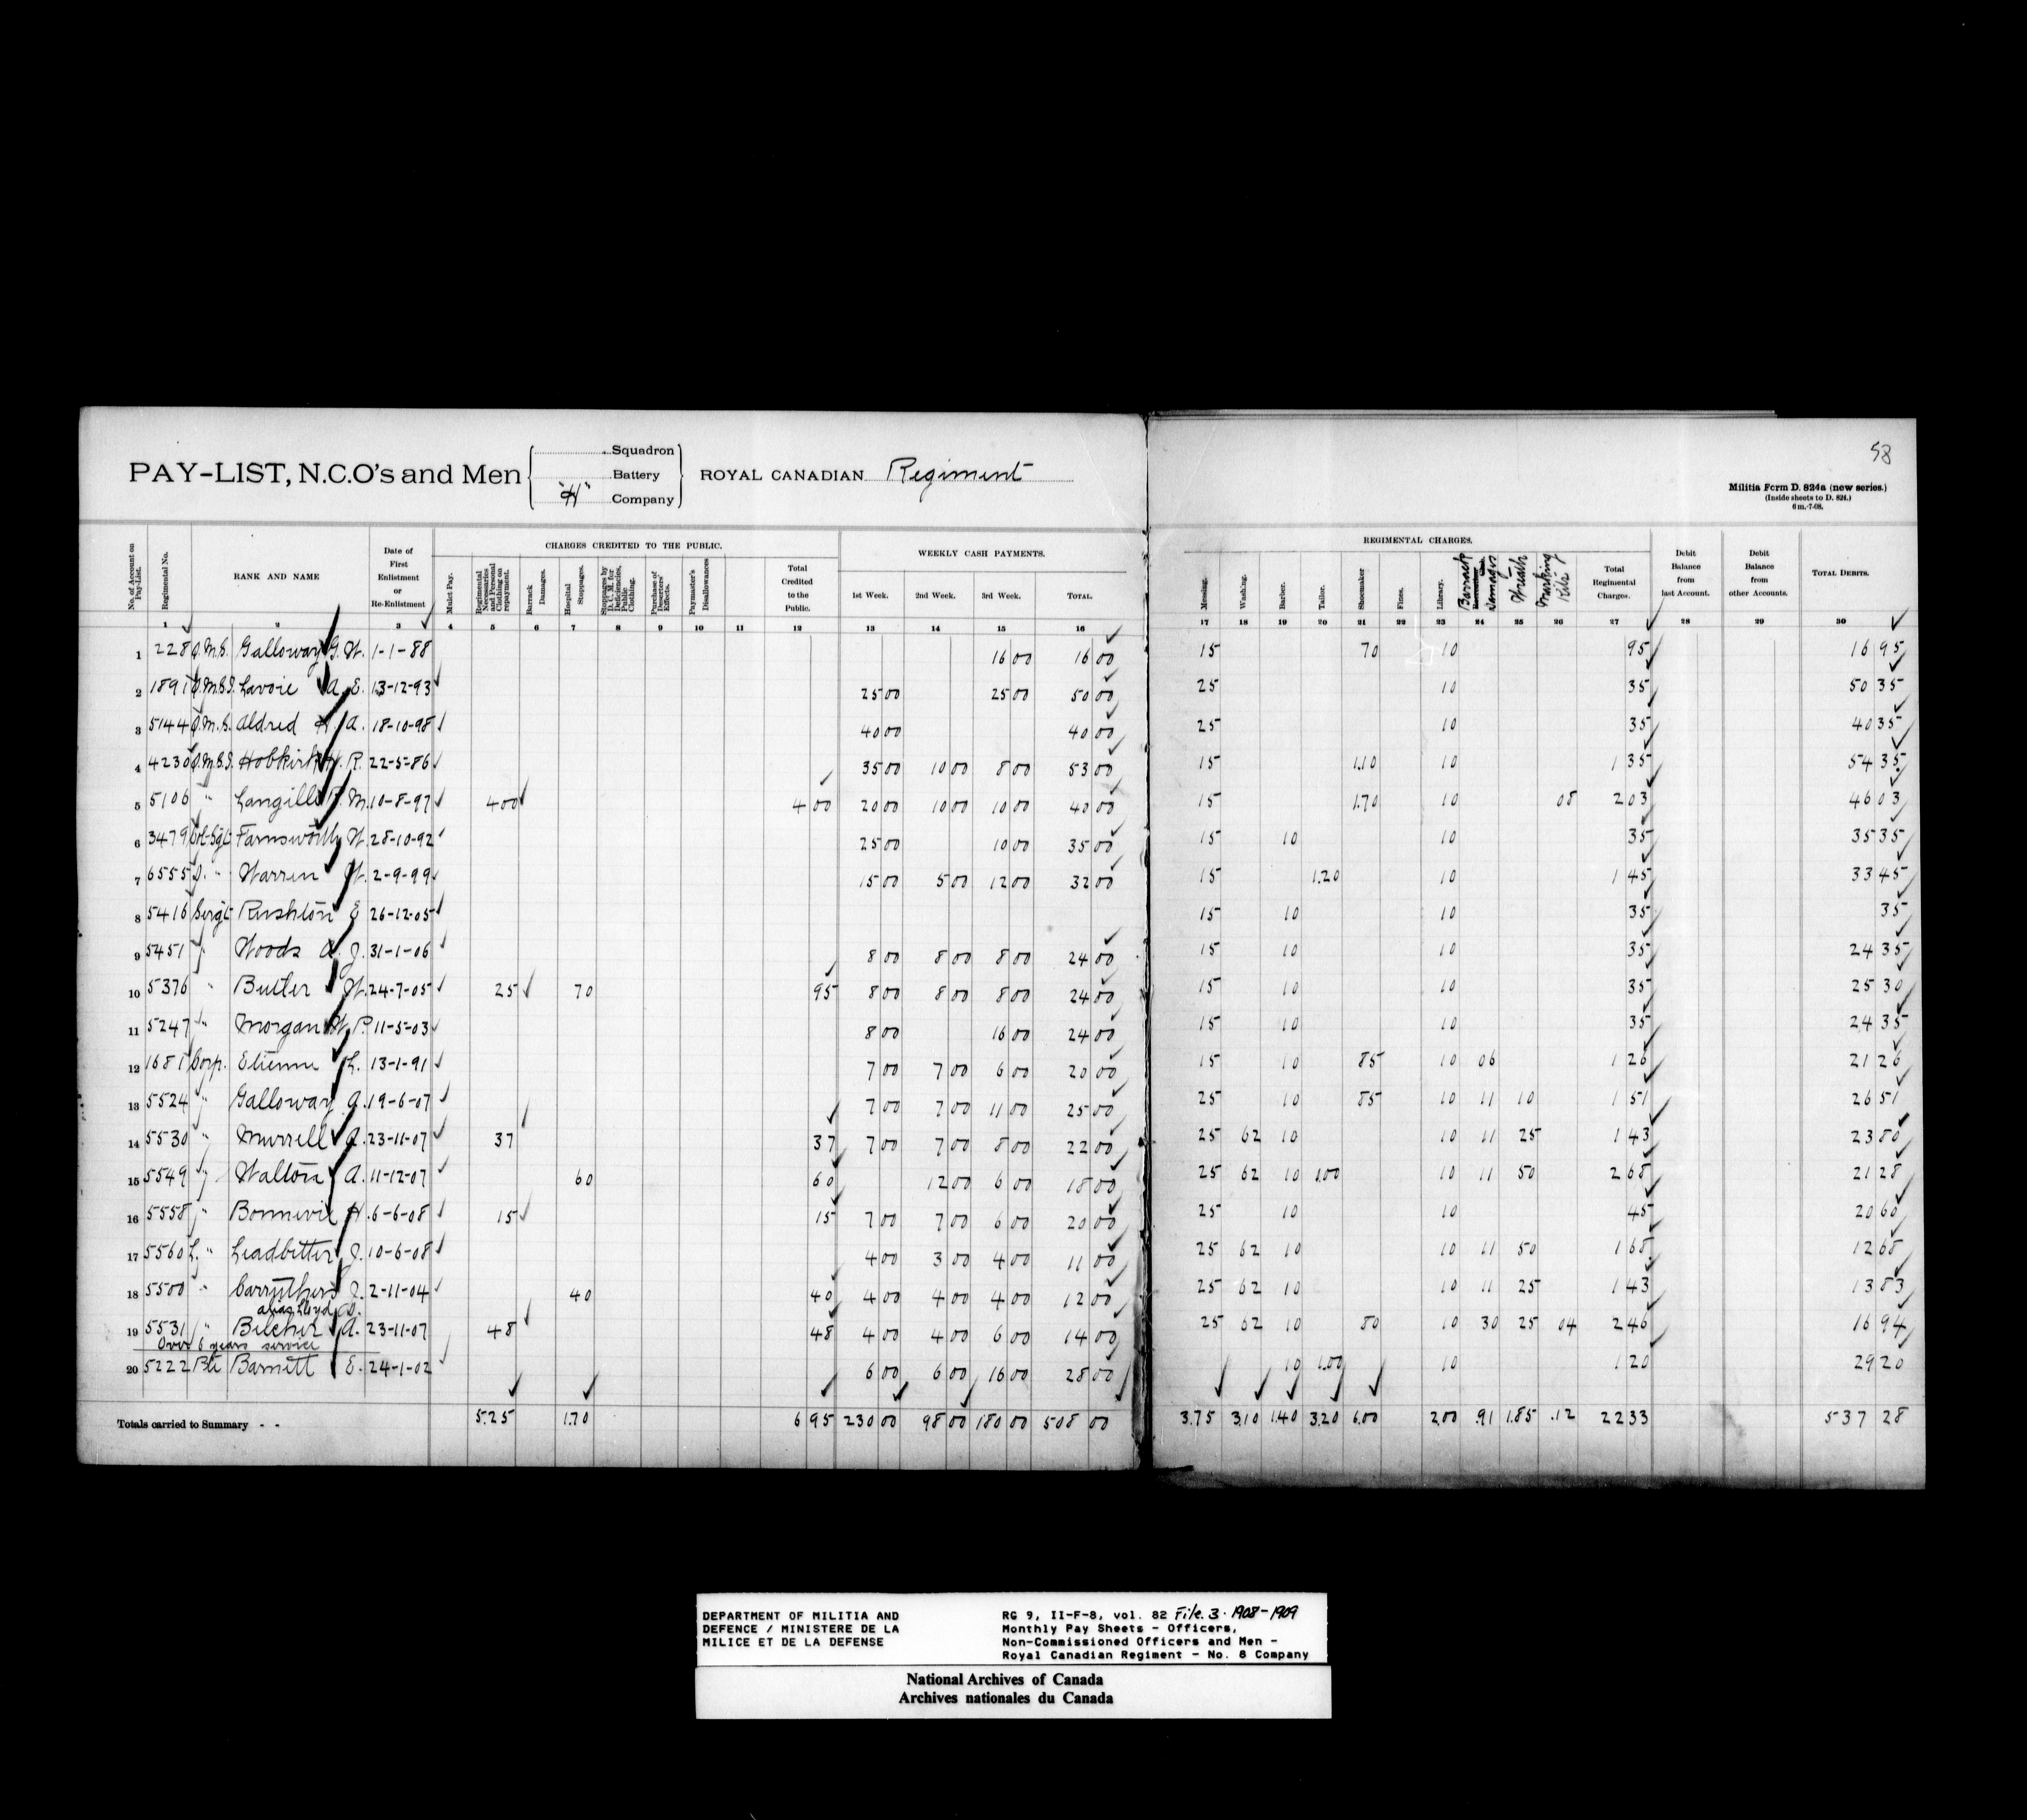 58
PAY-LIST, N.C.O's and Men Squadron Battery "H" Company ROYAL CANADIAN Regiment
Militia Form D. 824a (new series.)
(Inside sheets to D. 824.)
6 m.-7-08.
CHARGES CREDITED TO THE PUBLIC. WEEKLY CASH PAYMENTS. REGIMENTAL CHARGES.
No. of Account on Pay-List. Regimental No. RANK AND NAME Date of First Enlistment or Re-Enlistment Mulct Pay. Regimental Necessaries and Personal Clothing on repayment. Barrack Damages. Hospital Stoppages. Stoppages by D. C. M. for Deficiencies, Public Clothing. Purchase of Deserters' Effects. Paymaster's Disallowances Total Credited to the Public. 1st Week. 2nd Week. 3rd Week. TOTAL. Messing. Washing. Barber. Tailor. Shoemaker Fines. Library. Barrack Damages Wreath Marking Kits Total Regimental Charges. Debit Balance from last Account. Debit Balance from other Accounts. TOTAL DEBITS.
1 2 3 4 5 6 7 8 9 10 11 12 13 14 15 16 17 18 19 20 21 22 23 24 25 26 27 28 29 30
1 228 Q.M.S. Galloway G. W. 1-1-88 16 00 16 00 15 70 10 95 16 95
2 1891 Q.M.S.I. Lavoie A. E. 13-12-93 25 00 25 00 50 00 25 10 35 50 35
3 5144 Q.M.S. Aldred H. A. 18-10-98 40 00 40 00 25 10 35 40 35
4 4230 Q.M.S.I. Hobkirk H. R. 22-5-86 35 00 10 00 8 00 53 00 15 1.10 10 1 35 54 35
5 5106 " Langille R. M. 10-8-97 4 00 4 00 20 00 10 00 10 00 40 00 15 1.70 10 08 2 03 46 03
6 3479 Col-Sgt Farnsworth W. 28-10-92 25 00 10 00 35 00 15 10 10 35 35 35
7 6555 Q. " Warren W. 2-9-99 15 00 5 00 12 00 32 00 15 1.20 10 1 45 33 45
8 5416 Sergt Rushton E 26-12-05 15 10 10 35 35
9 5451 " Woods A. J. 31-1-06 8 00 8 00 8 00 24 00 15 10 10 35 24 35
10 5376 " Butler W. 24-7-05 25 70 95 8 00 8 00 8 00 24 00 15 10 10 35 25 30
11 5247 " Morgan W. P. 11-5-03 8 00 16 00 24 00 15 10 10 35 24 35
12 1681 Corp. Etienne L. 13-1-91 7 00 7 00 6 00 20 00 15 10 85 10 06 1 26 21 26
13 5524 " Galloway A. 19-6-07 7 00 7 00 11 00 25 00 25 10 85 10 11 10 1 51 26 51
14 5530 " Murrell A. 23-11-07 37 37 7 00 7 00 8 00 22 00 25 62 10 10 11 25 1 43 23 80
15 5549 " Walton A. 11-12-07 60 60 12 00 6 00 18 00 25 62 10 1.00 10 11 50 2 68 21 28
16 5558 " Bonnevie H. 6-6-08 15 15 7 00 7 00 6 00 20 00 25 10 10 45 20 60
17 5560 L. " Leadbetter J. 10-6-08 4 00 3 00 4 00 11 00 25 62 10 10 11 50 1 68 12 68
18 5500 " Carruthers J. 2-11-04 40 40 4 00 4 00 4 00 12 00 25 62 10 10 11 25 1 43 13 83
alias Lloyd D.
19 5531 " Belcher A. 23-11-07 48 48 4 00 4 00 6 00 14 00 25 62 10 80 10 30 25 04 2 46 16 94
Over 6 years service
20 5222 Pte Barnett E. 24-1-02 6 00 6 00 16 00 28 00 10 1.00 10 1 20 29 20
Totals carried to Summary - - 5.25 1.70 6 95 230 00 98 00 180 00 508 00 3.75 3.10 1.40 3.20 6.00 2.00 .91 1.85 .12 22 33 537 28
DEPARTMENT OF MILITIA AND
DEFENCE / MINISTERE DE LA
MILICE ET DE LA DEFENSE
RG 9, II-F-8, vol. 82 File. 3. 1908-1909
Monthly Pay Sheets - Officers,
Non-Commissioned Officers and Men -
Royal Canadian Regiment - No. 8 Company
National Archives of Canada
Archives nationales du Canada